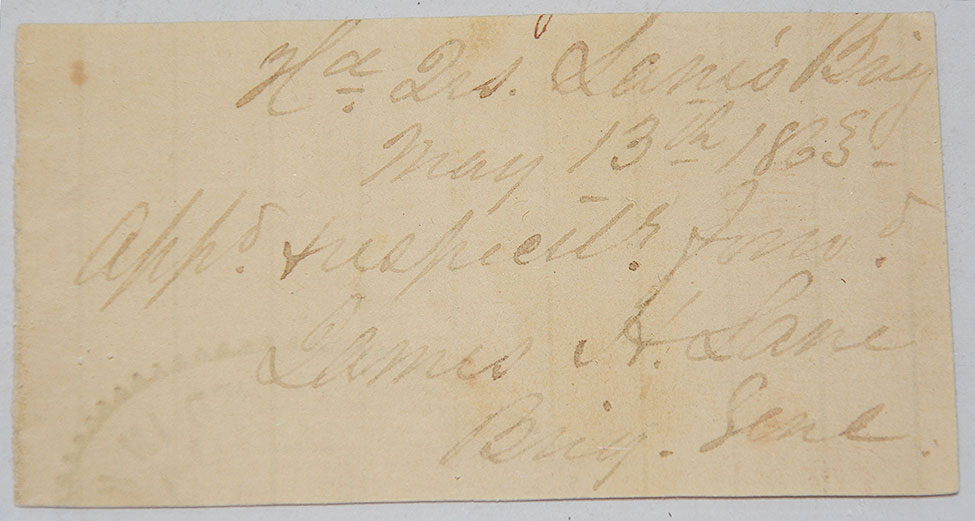 Hd. Qrs. Lane's Brig
May 13th 1863
Appd. & respectly. Forwd.
James H. Lane
Brig. Genl.